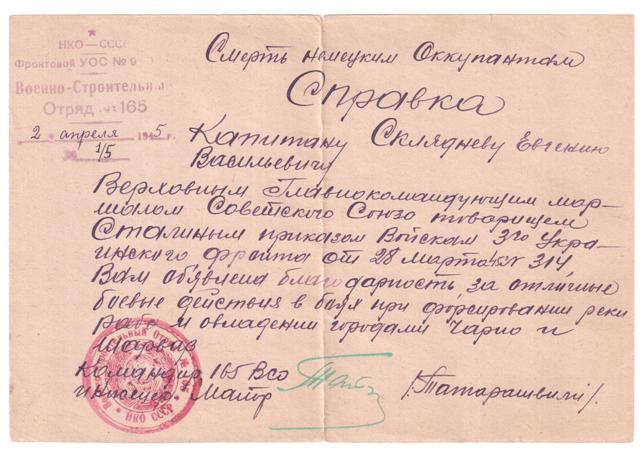 НКО — СССР
Фронтовой УОС № 9
Военно-Строительный
Отряд № 165
2 апреля 1945 г.
№ 1/5
Смерть немецким Оккупантам
Справка
Капитану Склядневу Евгению
Васильевичу
Верховным Главнокомандующим мар-
шалом Советского Союза товарищем
Сталиным приказом Войскам 3го Укра-
инского фронта от 28 Марта 45г № 314
Вам объявлена благодарность за отличные
боевые действия в боях при форсировании реки
Раба и овладении городами Чорно и
Шарвар
Командир 165 ВСО
инженер-Майор
/Татарашвили/.
НКО СССР